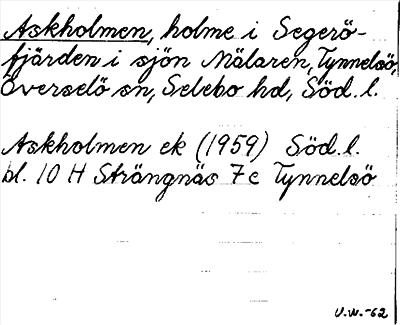 Askholmen, holme i Segerö-
fjärden i sjön Mälaren, Tynnelsö,
Överselö sn, Selebo hd, Söd. l.
Askholmen ek (1959) Söd. l.
bl. 10 H Strängnäs 7 c Tynnelsö
U.W.-62